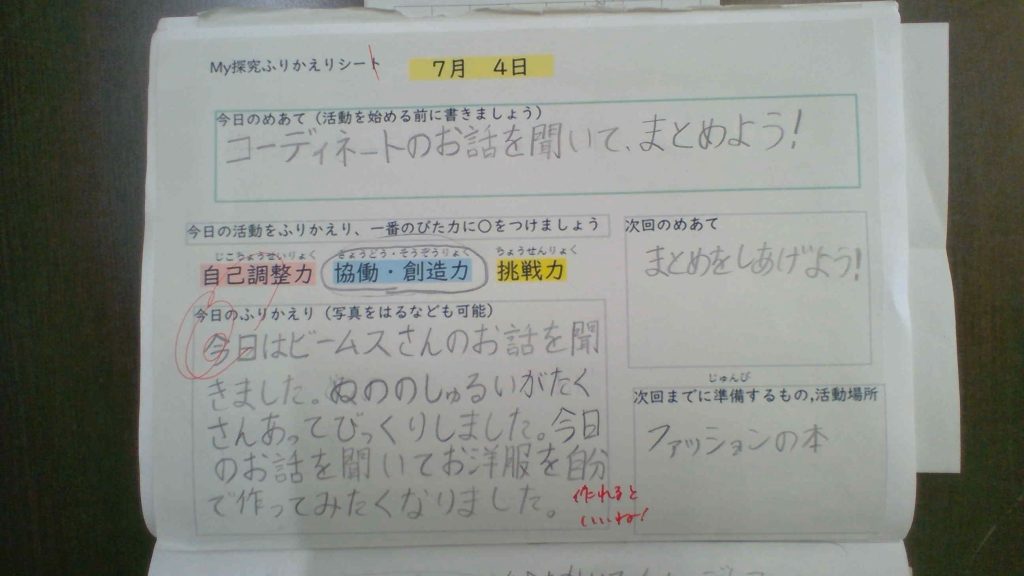 My探究ふりかえりシート
7月 4日
今日のめあて（活動を始める前に書きましょう）
コーディネートのお話を聞いて、まとめよう！
今日の活動をふりかえり、一番のびた力に○をつけましょう
じこちょうせいりょく きょうどう・そうぞうりょく ちょうせんりょく
自己調整力 協働・創造力 挑戦力
今日のふりかえり（写真をはるなども可能）
今日はビームスさんのお話を聞
きました。ぬののしゅるいがたく
さんあってびっくりしました。今日
のお話を聞いてお洋服を自分
で作ってみたくなりました。
作れると
いいね！
次回のめあて
まとめをしあげよう！
じゅんび
次回までに準備するもの,活動場所
ファッションの本